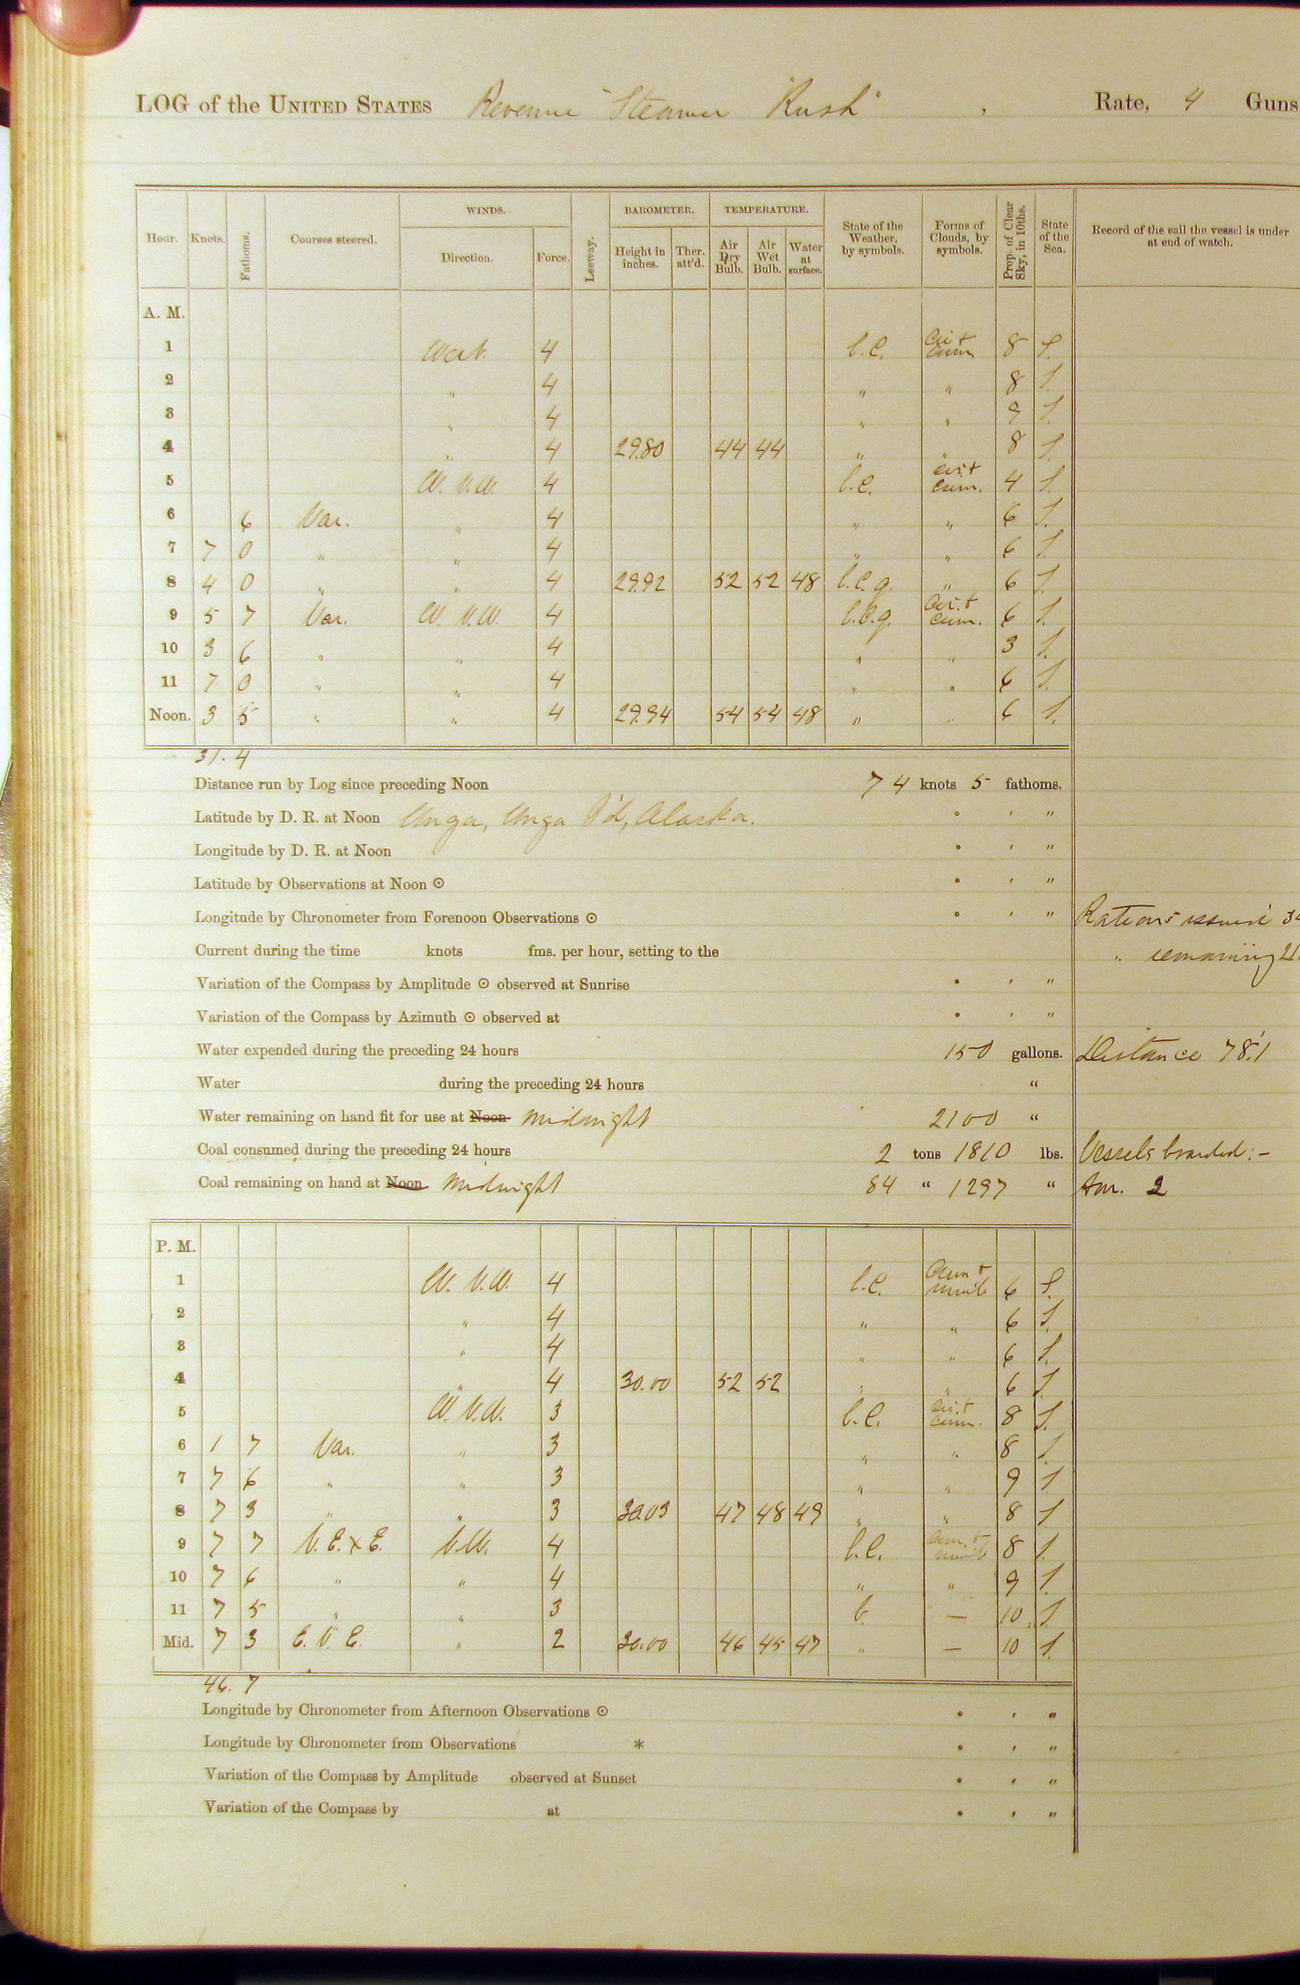 LOG of the UNITED STATES Revenue Steamer "Rush", Rate, 4 Guns
WINDS. BAROMETER. TEMPERATURE.
Hour. Knots. Fathoms. Courses steered. Direction. Force. Leeway. Height in inches. Ther. att'd. Air Dry Bulb. Air Wet Bulb. Water at surface. State of the Weather, by symbols. Forms of Clouds, by symbols. Prop. of Clear Sky, in 10ths. State of the Sea. Record of the sail the vessel is under at end of watch.
A. M.
1 West 4 b.c. Cir + Cum 8 S.
2 " 4 " " 8 S.
3 " 4 " " 9 S.
4 " 4 29.80 44 44 " " 8 S.
5 W. N.W. 4 b.c. Cir. + Cum. 4 S.
6 6 Var. " 4 " " 6 S.
7 7 0 " " 4 " " 6 S.
8 4 0 " " 4 29.92 52 52 48 b.c.g. " 6 S.
9 5 7 Var. W. N.W. 4 b.c.g. Cir. + Cum. 6 S.
10 3 6 " " 4 " " 3 S.
11 7 0 " " 4 " " 6 S.
Noon. 3 5 " " 4 29.94 54 54 48 " " 6 S.
31. 4
Distance run by Log since preceding Noon 74 knots 5 fathoms.
Latitude by D. R. at Noon Unga, Unga I'd, Alaska. ° ' "
Longitude by D. R. at Noon ° ' "
Latitude by Observations at Noon ⊙ ° ' "
Longitude by Chronometer from Forenoon Observations ⊙ ° ' " Rations issued
Current during the time knots fms. per hour, setting to the " remaining
Variation of the Compass by Amplitude ⊙ observed at Sunrise ° ' "
Variation of the Compass by Azimuth ⊙ observed at ° ' "
Water expended during the preceding 24 hours 150 gallons. Distance 78.1
Water during the preceding 24 hours "
Water remaining on hand fit for use at Noon Midnight 2100 "
Coal consumed during the preceding 24 hours 2 tons 1810 lbs. Vessels boarded:-
Coal remaining on hand at Noon Midnight 84 " 1297 " Am. 2
P. M.
1 W. N.W. 4 b.c. Cum + nimb 6 S.
2 " 4 " " 6 S.
3 " 4 " " 6 S.
4 " 4 30.00 52 52 " " 6 S.
5 W. N.W. 3 b.c. Cir. + Cum. 8 S.
6 1 7 Var. " 3 " " 8 S.
7 7 6 " " 3 " " 9 S.
8 7 3 " " 3 30.03 47 48 49 " " 8 S.
9 7 7 N.E. x E. N.W. 4 b.c. Cum. + nimb 8 S.
10 7 6 " " 4 " " 9 S.
11 7 5 " " 3 b. — 10 S.
Mid. 7 3 E. N. E. " 2 30.00 46 45 47 " — 10 S.
46. 7
Longitude by Chronometer from Afternoon Observations ⊙ ° ' "
Longitude by Chronometer from Observations * ° ' "
Variation of the Compass by Amplitude observed at Sunset ° ' "
Variation of the Compass by at ° ' "